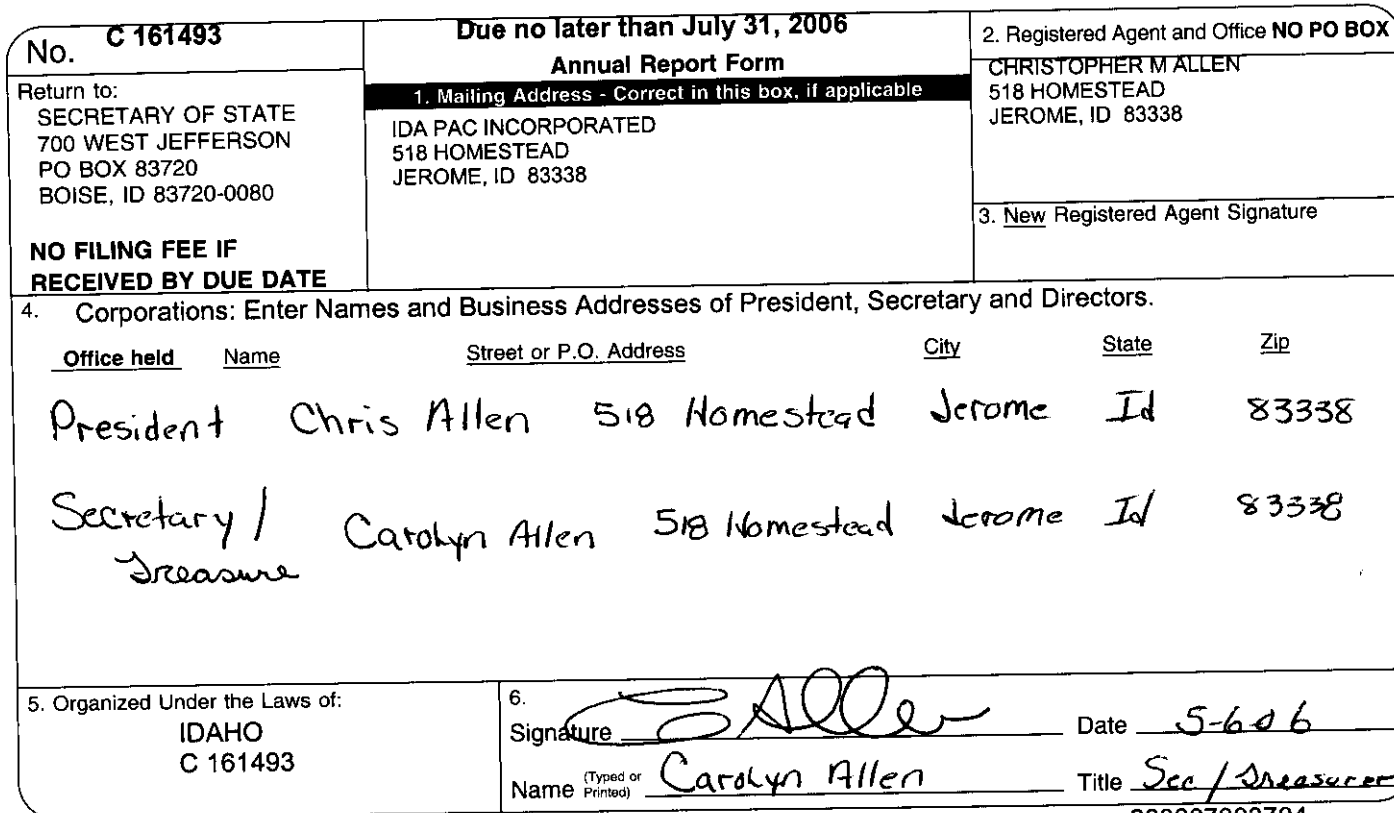 No. C 161493
Return to:
SECRETARY OF STATE
700 WEST JEFFERSON
PO BOX 83720
BOISE, ID 83720-0080
NO FILING FEE IF
RECEIVED BY DUE DATE
Due no later than July 31, 2006
Annual Report Form
1. Mailing Address - Correct in this box, if applicable
IDA PAC INCORPORATED
518 HOMESTEAD
JEROME, ID 83338
2. Registered Agent and Office NO PO BOX
CHRISTOPHER M ALLEN
518 HOMESTEAD
JEROME, ID 83338
3. New Registered Agent Signature
4. Corporations: Enter Names and Business Addresses of President, Secretary and Directors.
Office held Name Street or P.O. Address City State Zip
President Chris Allen 518 Homestead Jerome Id 83338
Secretary / Carolyn Allen 518 Homestead Jerome Id 83338
Treasure
5. Organized Under the Laws of:
IDAHO
C 161493
6.
Signature C Allen Date 5-6-06
Name (Typed or Printed) Carolyn Allen Title Sec / Treasurer